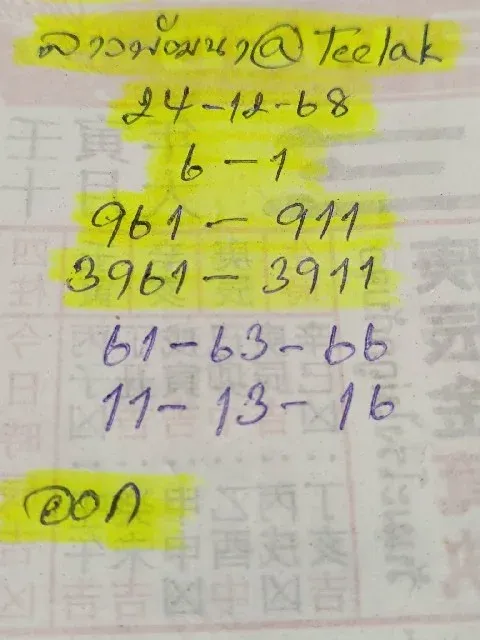 ลาวพัฒนา @ Teelak
24-12-68
6-1
961-911
3961-3911
61-63-66
11-13-16
ออก